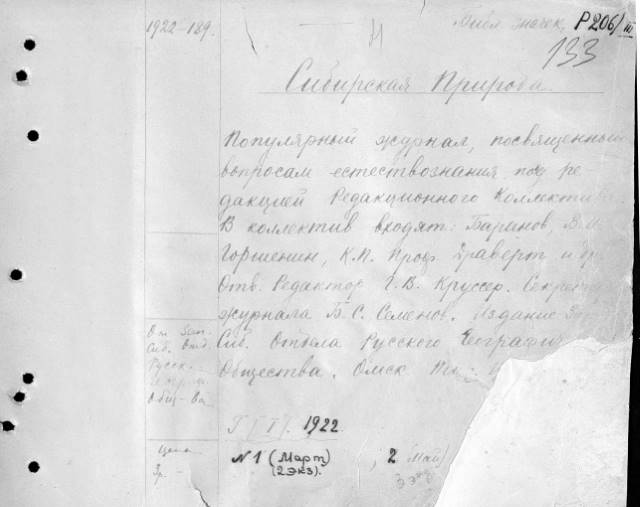 1922-189.
Р206/III
133
Сибирская Природа.
Популярный журнал, посвященный
вопросам естествознания под ре-
дакцией Редакционного Коллектива.
В коллектив входят: Баринов,
Горшенин, К.П. Проф. Драверт и др.
Отв. Редактор Г. В. Круссер.
журнала Б. С. Семенов. Издание
Сиб. Отдела Русского
Общества. Омск
От Зап.
Сиб. Отд.
Русск.
Общ-Ва
1922.
Цена
№1 (Март), 2 (Май)
(2 экз).